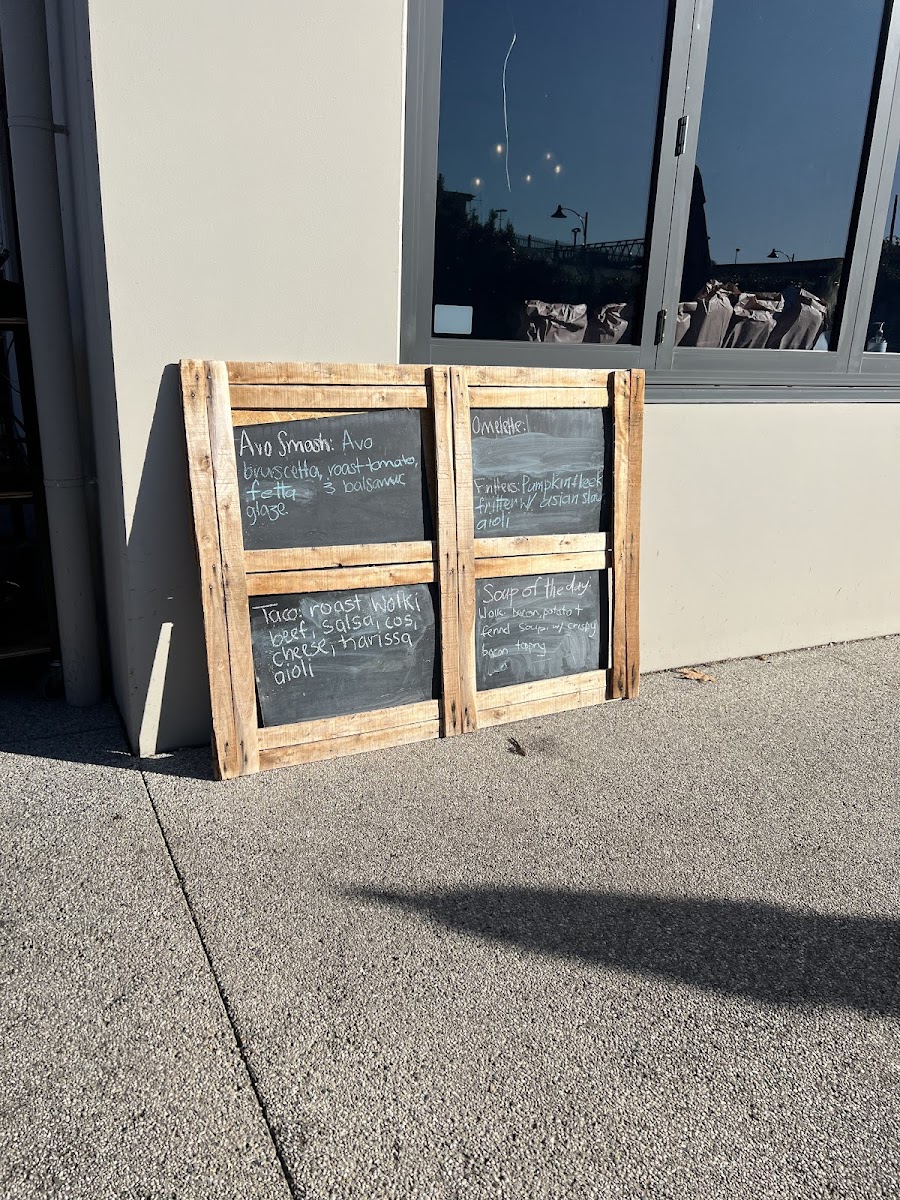 Avo Smash: Avo
bruscetta, roast tomato,
fetta & balsamic
glaze
Omelette:
Fritters: Pumpkin + leek
fritter w/ asian slaw
aioli
Taco: roast Wolki
beef, salsa, cos,
cheese, harissa
aioli
Soup of the day:
Wolki bacon, potato +
fennel soup, w/ crispy
bacon topping